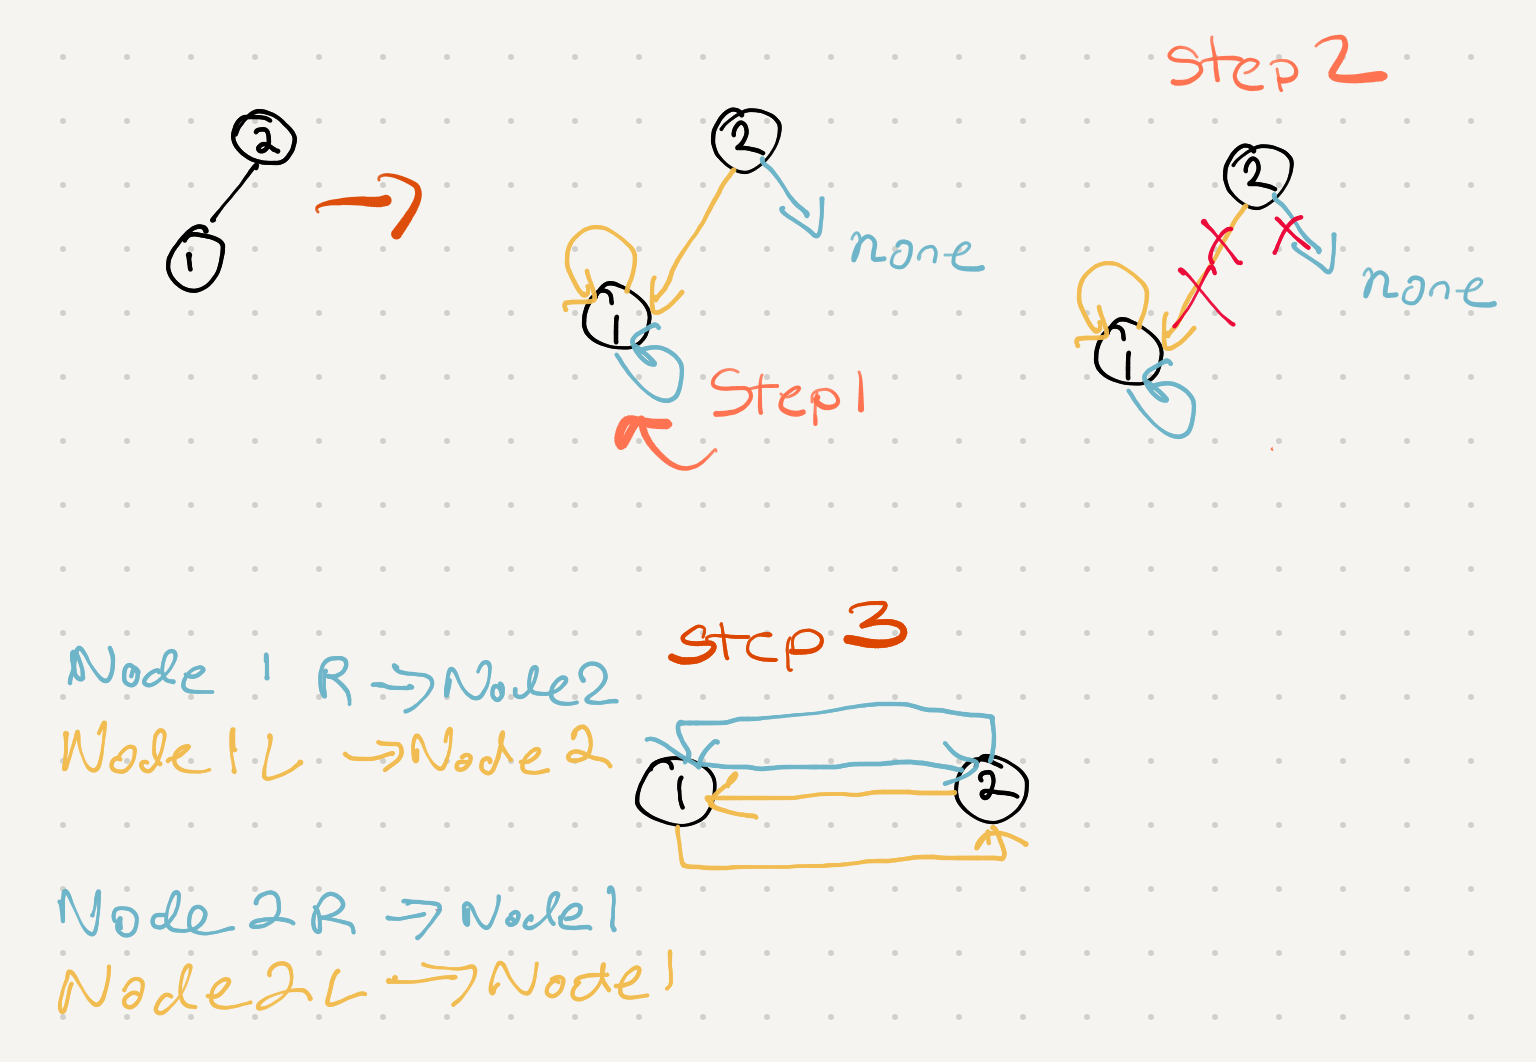 Step 2
2
2
2
1
none
none
1
1
Step 1
Step 3
Node 1 R → Node 2
Node 1 L → Node 2
1
2
Node 2 R → Node 1
Node 2 L → Node 1